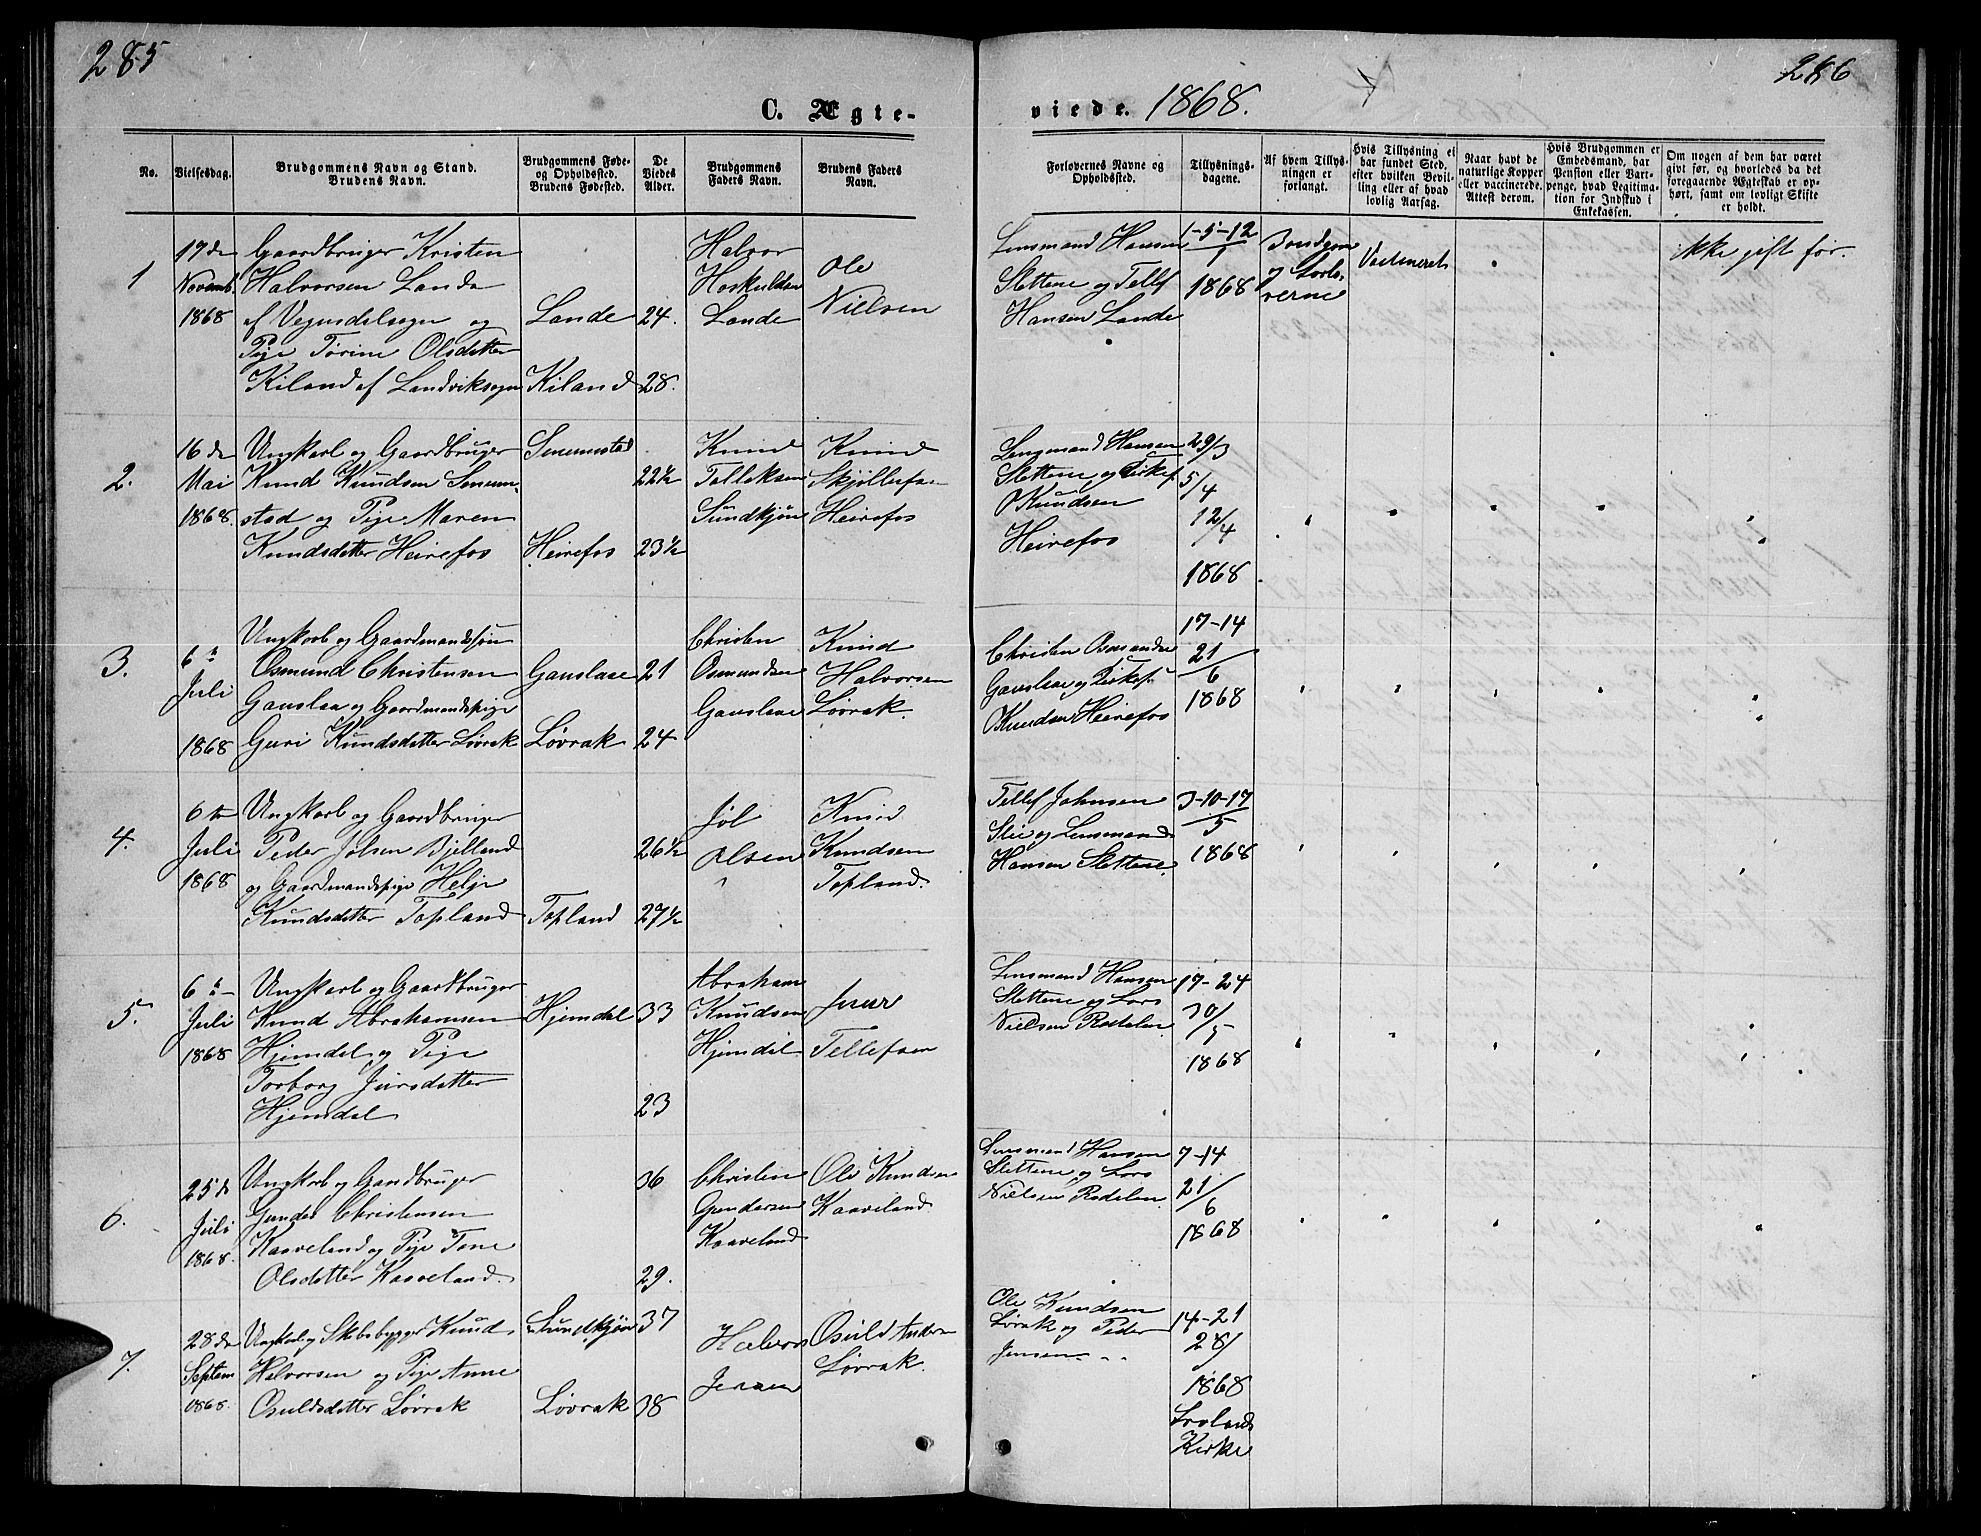 285
286
C. Ægte-
viede. 1868.
No.
Vielsesdag.
Brudgommens Navn og Stand.
Brudens Navn.
Brudgommens Føde-
og Opholdssted.
Brudens Fødested.
De
Viedes
Alder.
Brudgommens
Faders Navn.
Brudens Faders
Navn.
Forlovernes Navne og
Opholdssted.
Tillysnings-
dagene.
Af hvem Tillys-
ningen er
forlangt.
Hvis Tillysning ei
har fundet Sted,
efter hvilken Bevil-
ling eller af hvad
lovlig Aarsag.
Naar havt de
naturlige Kopper
eller vaccinerede.
Attest derom.
Hvis Brudgommen er
Embedsmand, har
Pension eller Vart-
penge, hvad Legitima-
tion for Indskud i
Enkekassen.
Om nogen af dem har været
givt før, og hvorledes da det
foregaaende Ægteskab er op-
hørt, samt om lovligt Skifte
er holdt.
1
17de
Novemb.
1868
Gaardbruger Kristen
Halvorsen Lande
af Vegusdalsogn og
Pige Torine Olsdatter
Kiland af Landviksogn
Lande
Kiland
24.
28.
Halvor
Hoskuldsen
Lande
Ole
Nielsen
Lensmand Hansen
Slettene og Tellef
Hansen Lande
1-5-12
1868
Vaccineret
ikke gift før.
2.
16de
Mai
1868.
Ungkarl og Gaardbruger
Knud Knudsen Senum-
stad og Pige Maren
Knudsdatter Heirefos
Senumstad
Heirefos
22½
23½
Knud
Telleksen
Sundkjøn
Knud
Heirefos
Lensmand Hansen
Slettene og
O Knudsen
Heirefos
29/3
5/4
12/4
1868
3.
6
Juli
1868
Ungkarl og Gaardmandssøn
Osmund Christensen
Gauslaa og Gaardmandspige
Guri Knudsdatter Løvrak
Gauslaae
Løvrak
21
24
Christen
Osmundsen
Gauslaae
Knud
Halvorsen
Løvrak.
Christen
Gauslaae og
O Knudsen Heirefos
17-14
21/6
1868
4.
6te
Juli
1868
Ungkarl og Gaardbruger
Peder Jølsen Bjelland
og Gaardmandspige Helje
Knudsdatter Topland
Topland
26½
27½
Jøl
Olsen
Knud
Knudsen
Topland.
Tellef Johnsen
Slie og Lensmand
Hansen Slettene
3-10-17/5
1868
5.
6
Juli
1868
Ungkarl og Gaardbruger
Knud Abrahamsen
Hjemdal og Pige
Torborg Jursdatter
Hjemdal
Hjemdal
33
23
Abraham
Knudsen
Hjemdal
Juur
Tellefsen
Lensmand Hansen
Slettene og Lars
Nielsen Rædalen
17-24
30/5
1868
6.
25de
Juli
1868.
Ungkarl og Gaardbruger
Christensen
Kaaveland og Pige Tone
Olsdatter Kaaveland.
36
29.
Christen
Gundersen
Kaaveland
Ole Knudsen
Kaaveland
Lensmand Hansen
Slettene og Lars
Nielsen Rædalen
7-14
21/6
1868
7.
28de
Septem
1868.
Ungkarl og Skibsbygger Knud
Halvorsen og Pige Anne
Osuldsdatter Løvrak
Sundkjøn
Løvrak
37
38
Halvor
Jensen
Osuld Anders
Løvrak.
Ole Knudsen
Løvrak og Peder
Jensen
14-21
28/
1868
Froland
Kirke